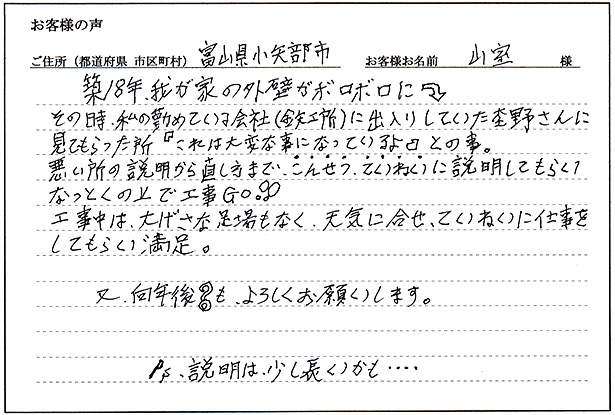 お客様の声
ご住所（都道府県 市区町村） 富山県小矢部市 お客様お名前 山室 様
築18年、我が家の外壁がボロボロに
その時、私の勤めている会社(鉄工所)に出入りしていた杢野さんに
見てもらった所『これは大変な事になっているよ』との事。
悪い所の説明から直し方まで、こんせつ、ていねいに説明してもらい
なっとくの上で工事GO!!
工事中は、大げさな足場もなく、天気に合せ、ていねいに仕事を
してもらい満足。
又、何年後も、よろしくお願いします。
Ps、説明は、少し長いかも・・・・